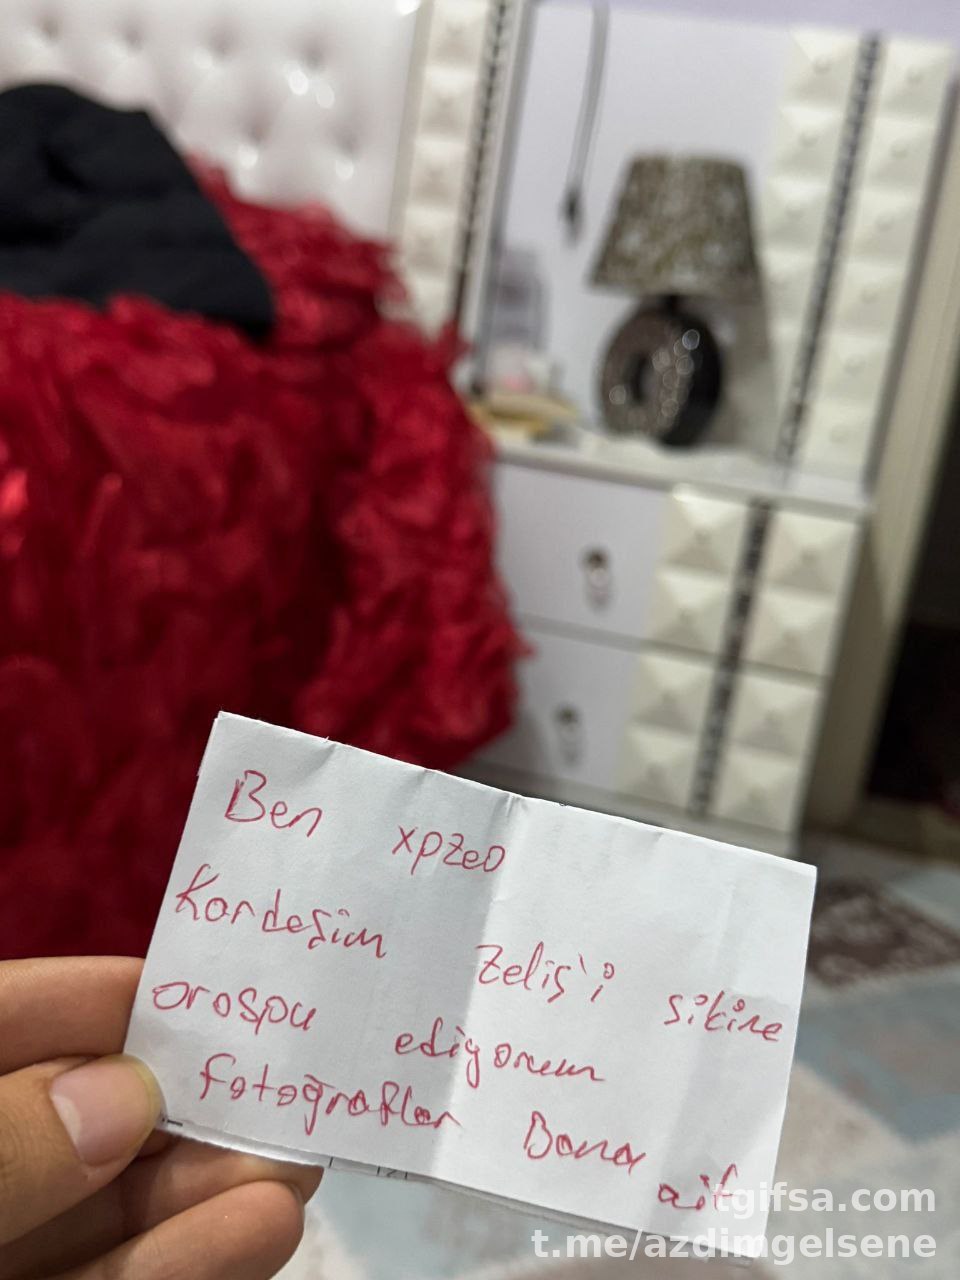 Ben xpzeo
Kardeşim Zeliş'i sikine
orospu ediyorum
fotoğraflar Bana
ait
tgifsa.com
t.me/azdimgelsene